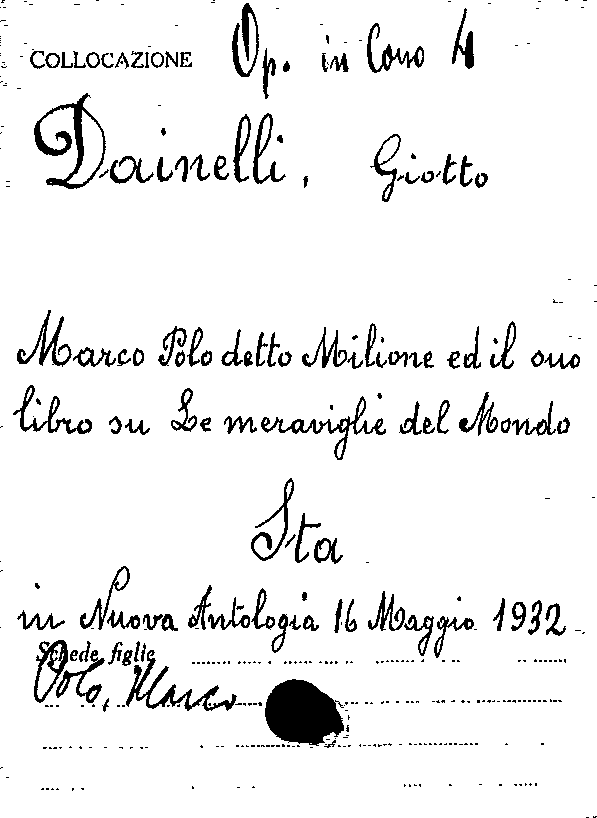 COLLOCAZIONE Op. in Cono 4
Dainelli, Giotto
Marco Polo detto Milione ed il suo
libro su Le meraviglie del Mondo
Sta
in Nuova Antologia 16 Maggio 1932
Schede figlie
Polo, Marco